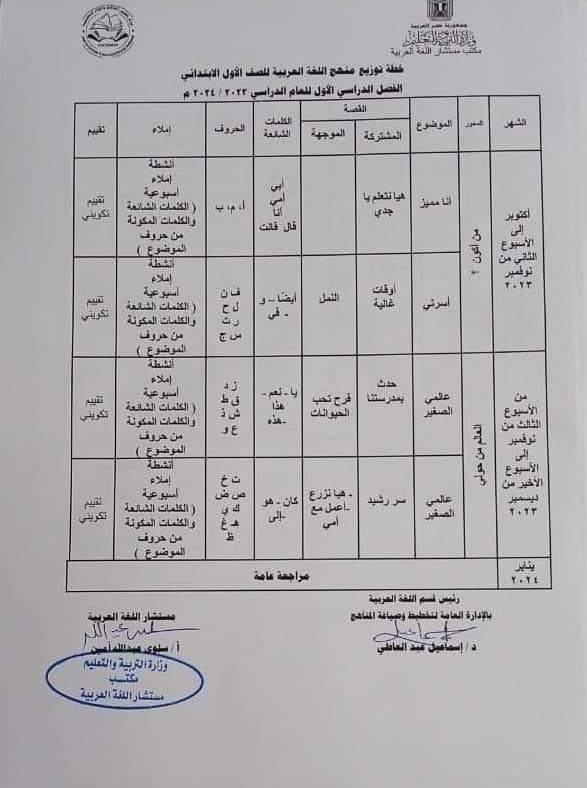 جمهورية مصر العربية
وزارة التربية والتعليم
مكتب مستشار اللغة العربية
خطة توزيع منهج اللغة العربية للصف الأول الابتدائي
الفصل الدراسي الأول للعام الدراسي ٢٠٢٣ / ٢٠٢٤ م
الشهر المحور الموضوع القصة الكلمات الشائعة الحروف إملاء تقييم
المشتركة الموجهة
أكتوبر
إلى
الأسبوع
الثاني من
نوفمبر
٢٠٢٣
من أكون ؟
أنا مميز
هيا نتعلم يا
جدي
أبي
أمي
أنا
قال قالت
أ، م، ب
أنشطة
إملاء
أسبوعية
( الكلمات الشائعة
والكلمات المكونة
من حروف
الموضوع )
تقييم
تكويني
أسرتي
أوقات
غالية
النمل
أيضًا – و
- في
ف ن
ل ح
ر ت
س ج
أنشطة
إملاء
أسبوعية
( الكلمات الشائعة
والكلمات المكونة
من حروف
الموضوع )
تقييم
تكويني
من
الأسبوع
الثالث من
نوفمبر
إلى
الأسبوع
الأخير من
ديسمبر
٢٠٢٣
العالم من حولي
عالمي
الصغير
حدث
بمدرستنا
فرح تحب
الحيوانات
يا - نعم -
هذا
-هذه
ز د
ق ط
ش ذ
ع و
أنشطة
إملاء
أسبوعية
( الكلمات الشائعة
والكلمات المكونة
من حروف
الموضوع )
تقييم
تكويني
عالمي
الصغير
سر رشيد
- هيا نزرع
-أعمل مع
أمي
كان - هو
-إلى
ث خ
ص ض
ك ي
هـ غ
ظ
أنشطة
إملاء
أسبوعية
( الكلمات الشائعة
والكلمات المكونة
من حروف
الموضوع )
تقييم
تكويني
يناير
٢٠٢٤
مراجعة عامة
رئيس قسم اللغة العربية
بالإدارة العامة لتخطيط وصياغة المناهج
د / إسماعيل عبد العاطي
مستشار اللغة العربية
أ / سلوى عبدالله أمين
وزارة التربية والتعليم
مكتب
مستشار اللغة العربية